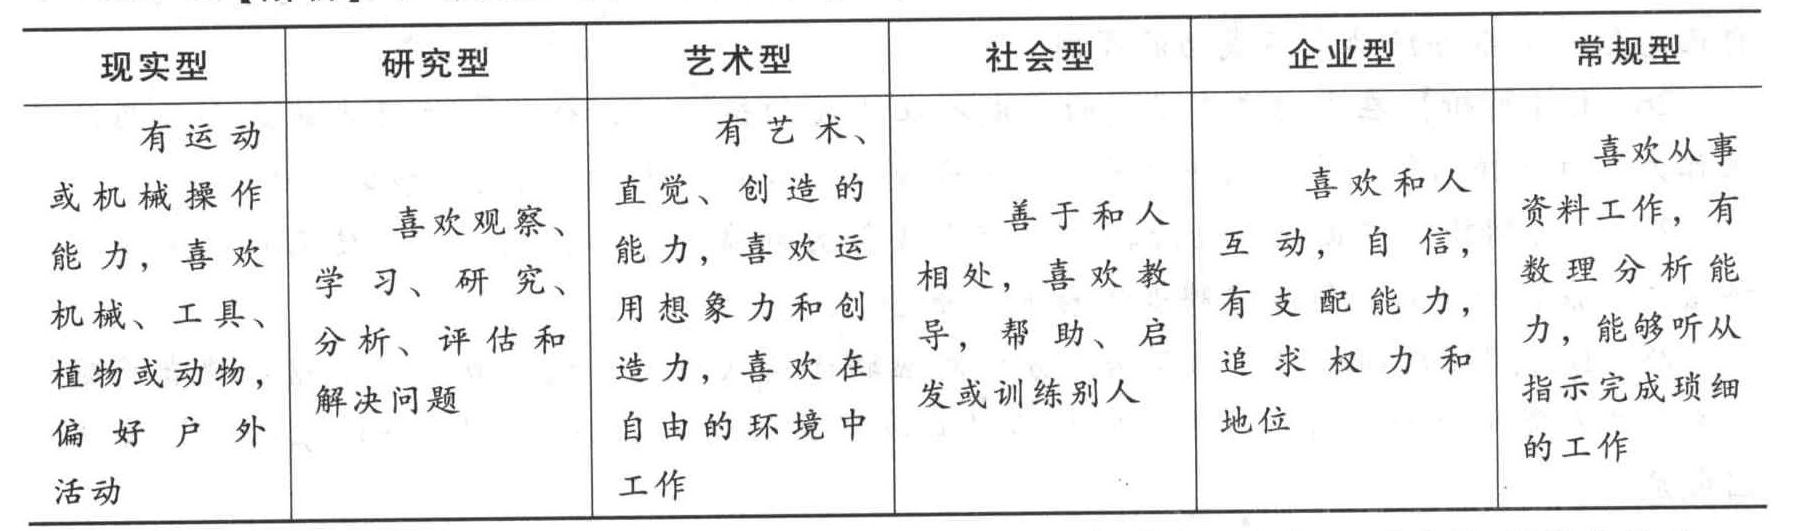 现实型
研究型
艺术型
社会型
企业型
常规型
有运动
或机械操作
能力，喜欢
机械、工具、
植物或动物，
偏好户外
活动
喜欢观察、
学习、研究、
分析、评估和
解决问题
有艺术、
直觉、创造的
能力，喜欢运
用想象力和创
造力，喜欢在
自由的环境中
工作
善于和人
相处，喜欢教
导，帮助、启
发或训练别人
喜欢和人
互动，自信，
有支配能力，
追求权力和
地位
喜欢从事
资料工作，有
数理分析能
力，能够听从
指示完成琐细
的工作